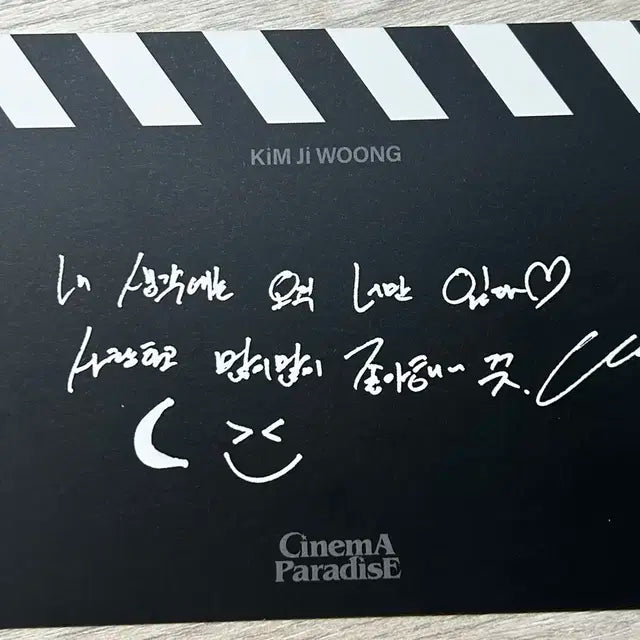 KiM Ji WOONG
내 생각에는 오직 너만 있다♡
사랑하고 많이많이 좋아해~ 끗.
CinemA
ParadisE